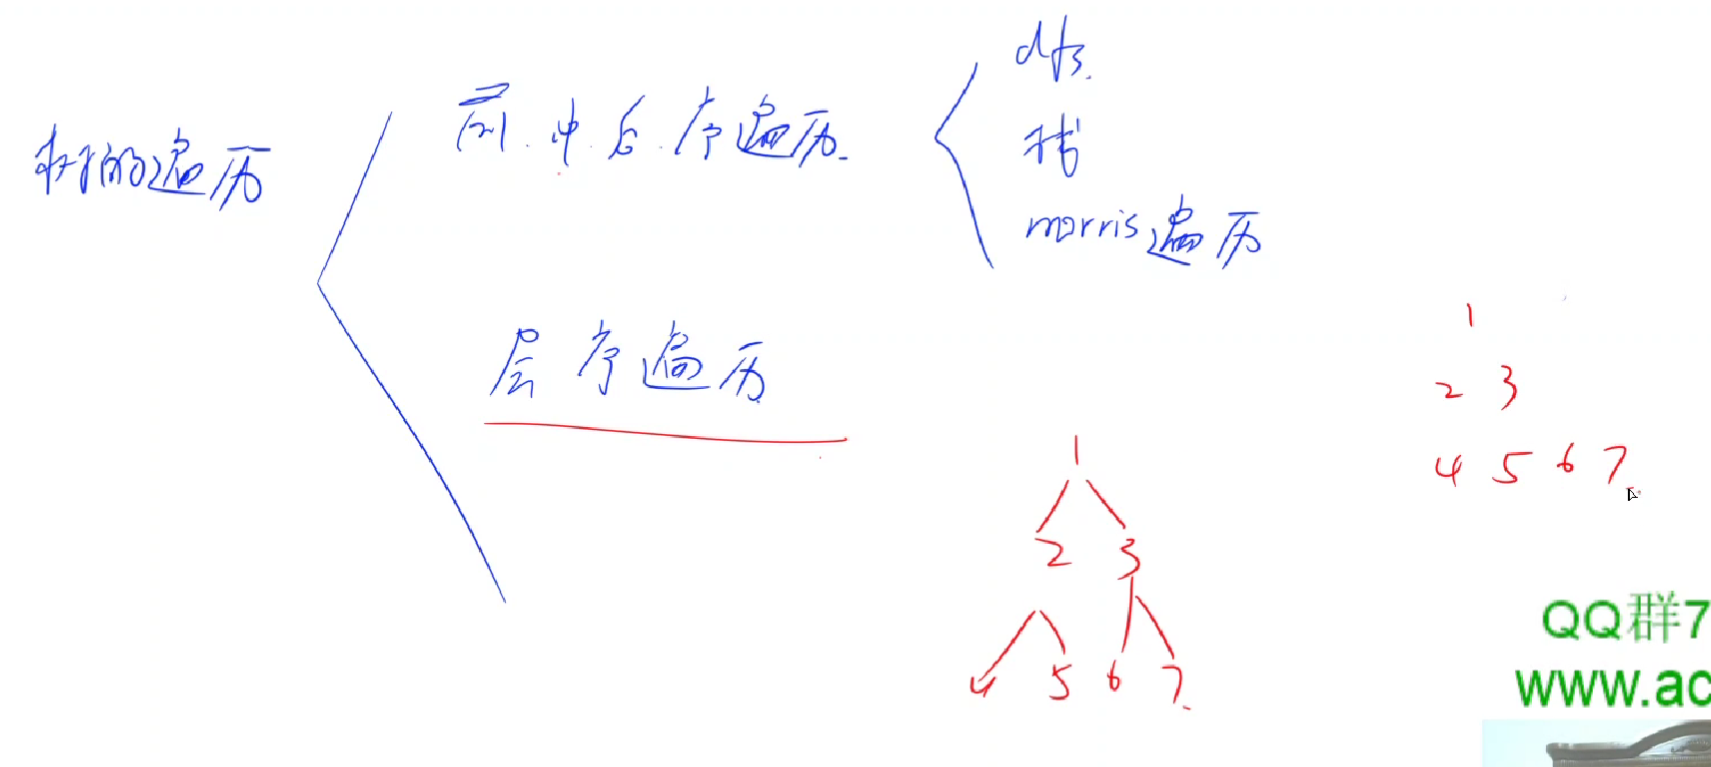 树的遍历
前.中.后.序遍历.
dfs.
栈
morris遍历
层序遍历
1
2 3
4 5 6 7.
1
2 3
4 5 6 7.
QQ群7
www.ac